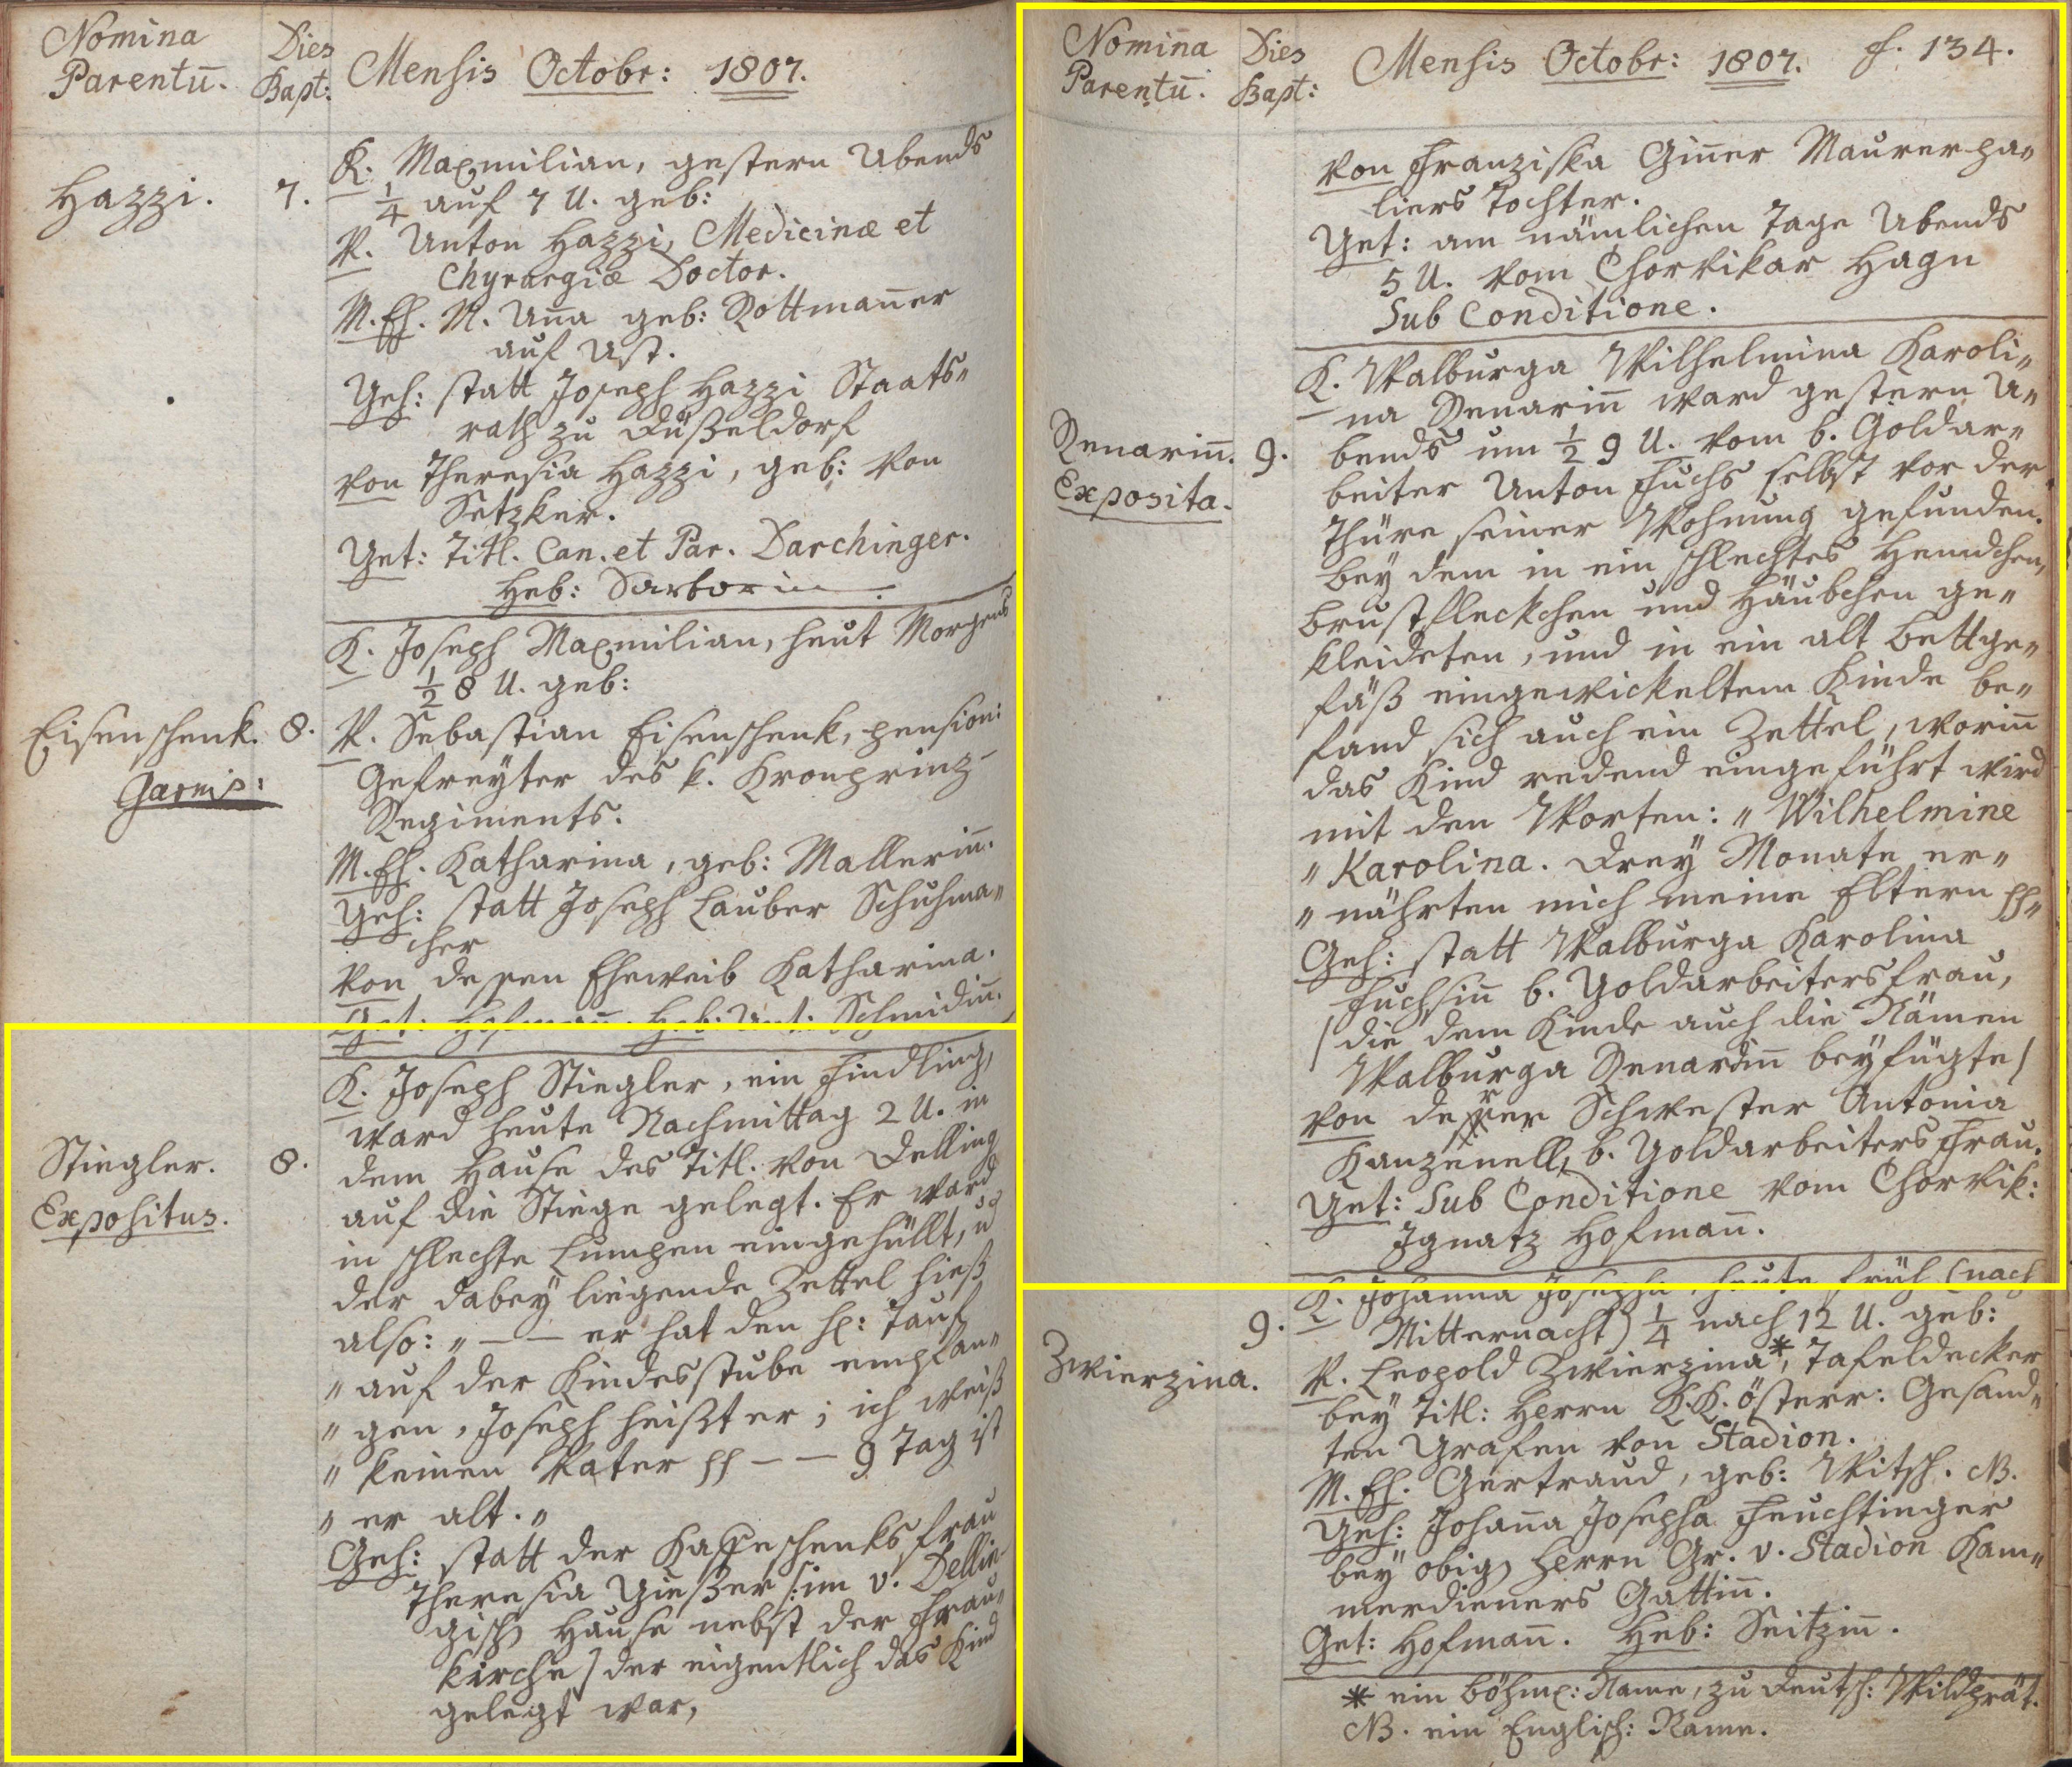 Nomina
Parentū.
Dies
Bapt:
Mensis Octobr: 1807.
Hazzi.
7.
K. Maxmilian, gestern Abends
1/4 auf 7 U. geb:
V. Anton Hazzi, Medicinæ et
Chyrurgiæ Doctor.
M. Eh. M. Aña geb: Rottmañer
auf Ast.
Geh: statt Joseph Hazzi Staats„
rath zu Düßeldorf
von Theresia Hazzi, geb: von
Setzker.
Get: Titl. Can. et Par. Darchinger.
Heb: Sartorin.
Eisenschenk.
Garnis:
8.
K. Joseph Maxmilian, heut Morgens
1/2 8 U. geb:
V. Sebastian Eisenschenk, pension:
Gefreyter des k. Kronprinz-
Regiments.
M. Eh. Katharina, geb: Mallerin̄.
Geh: statt Joseph Lauber Schuhma„
cher
von dessen Eheweib Katharina.
Get: Hofmañ. Heb: Ant: Schmidin̄.
Stiegler.
Expositus.
8.
K. Joseph Stiegler, ein Findling,
ward heute Nachmittag 2 U. in
dem Hause des Titl. von Delling
auf die Stiege gelegt. Er ward
in schlechte Lumpen eingehüllt, ū
der dabey liegende Zettel hieß
also: „ — — er hat den hl: Tauf
„ auf der Kindesstube empfan„
„ gen, Joseph heißt er; ich weiß
„ keinen Vater pp — — 9 Tag ist
„ er alt. „
Geh: statt der Kaffeschenksfrau
Theresia Gießer /: im v. Dellin-
gisch Hause nebst der Frau„
kirche / der eigentlich das Kind
gelegt war,
Nomina
Parentū.
Dies
Bapt:
Mensis Octobr: 1807. f. 134.
von Franziska Giñer Maurerpa„
liers Tochter.
Get: am nämlichen Tage Abends
5 U. vom Chorvikar Hagn
Sub Conditione.
Renarin̄.
Exposita.
9.
K. Walburga Wilhelmina Karoli„
na Renarin̄ ward gestern A„
bends um 1/2 9 U. vom b. Goldar„
beiter Anton Fuchs selbst vor der
Thüre seiner Wohnung gefunden.
Bey dem in ein schlechtes Hemdchen,
Brustfleckchen und Häubchen ge„
kleideten, und in ein alt Bettge„
fäß eingewickeltem Kinde be„
fand sich auch ein Zettel, worin̄
das Kind redend eingeführt wird
mit den Worten: „ Wilhelmine
„ Karolina. Drey Monate er„
„ nährten mich meine Eltern pp„
Geh: statt Walburga Karolina
Fuchsin̄ b. Goldarbeitersfrau,
/ die dem Kinde auch die Nämen
Walburga Renardin̄ beyfügte /
von derer Schwester Antonia
Kanzenell, b. Goldarbeitersfrau.
Get: Sub Conditione vom Chorvik:
Ignatz Hofmañ.
Zwierzina.
9.
K. Johanna Josepha, heute früh (nach
Mitternacht) 1/4 nach 12 U. geb:
V. Leopold Zwierzina*, Tafeldecker
bey Titl: Herrn K.K. österr: Gesand„
ten Grafen von Stadion.
M. Eh. Gertraud, geb: Witsch. NB.
Geh: Johaña Josepha Feuchtinger
bey obig Herrn Gr. v. Stadion Kam„
merdieners Gattin̄.
Get: Hofmañ. Heb: Seitzin̄.
* ein böhm: Name, zu deutsch: Wildprät.
NB. ein Englisch: Name.